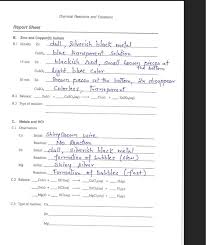 Chemical Reactions and Equations
Report Sheet
B. Zinc and Copper(II) Sulfate
B.1 Initially Zn dull, Silverish black metal
CuSO₄ blue transparent Solution
15 min Zn blackish red, small brown pieces at the bottom
CuSO₄ light blue color
30 min Zn brown pieces at the bottom, Zn disappear
CuSO₄ Colorless, Transparent
B.2 Balance: Zn(s) + CuSO₄(aq) → Cu(s) + ZnSO₄(aq)
B.3 Type of reaction:
C. Metals and HCl
C.1 Observations
Cu Initial Shiny Brown Wire
Reaction No Reaction
Zn Initial dull, Silverish black metal
Reaction formation of bubbles (slow)
Mg Initial Shiny Silver
Reaction Formation of bubbles (fast)
C.2 Balance: Cu(s) + HCl(aq) →
Zn(s) + HCl(aq) →
Mg(s) + HCl(aq) →
C.3 Type of reaction: Cu
Zn
Mg